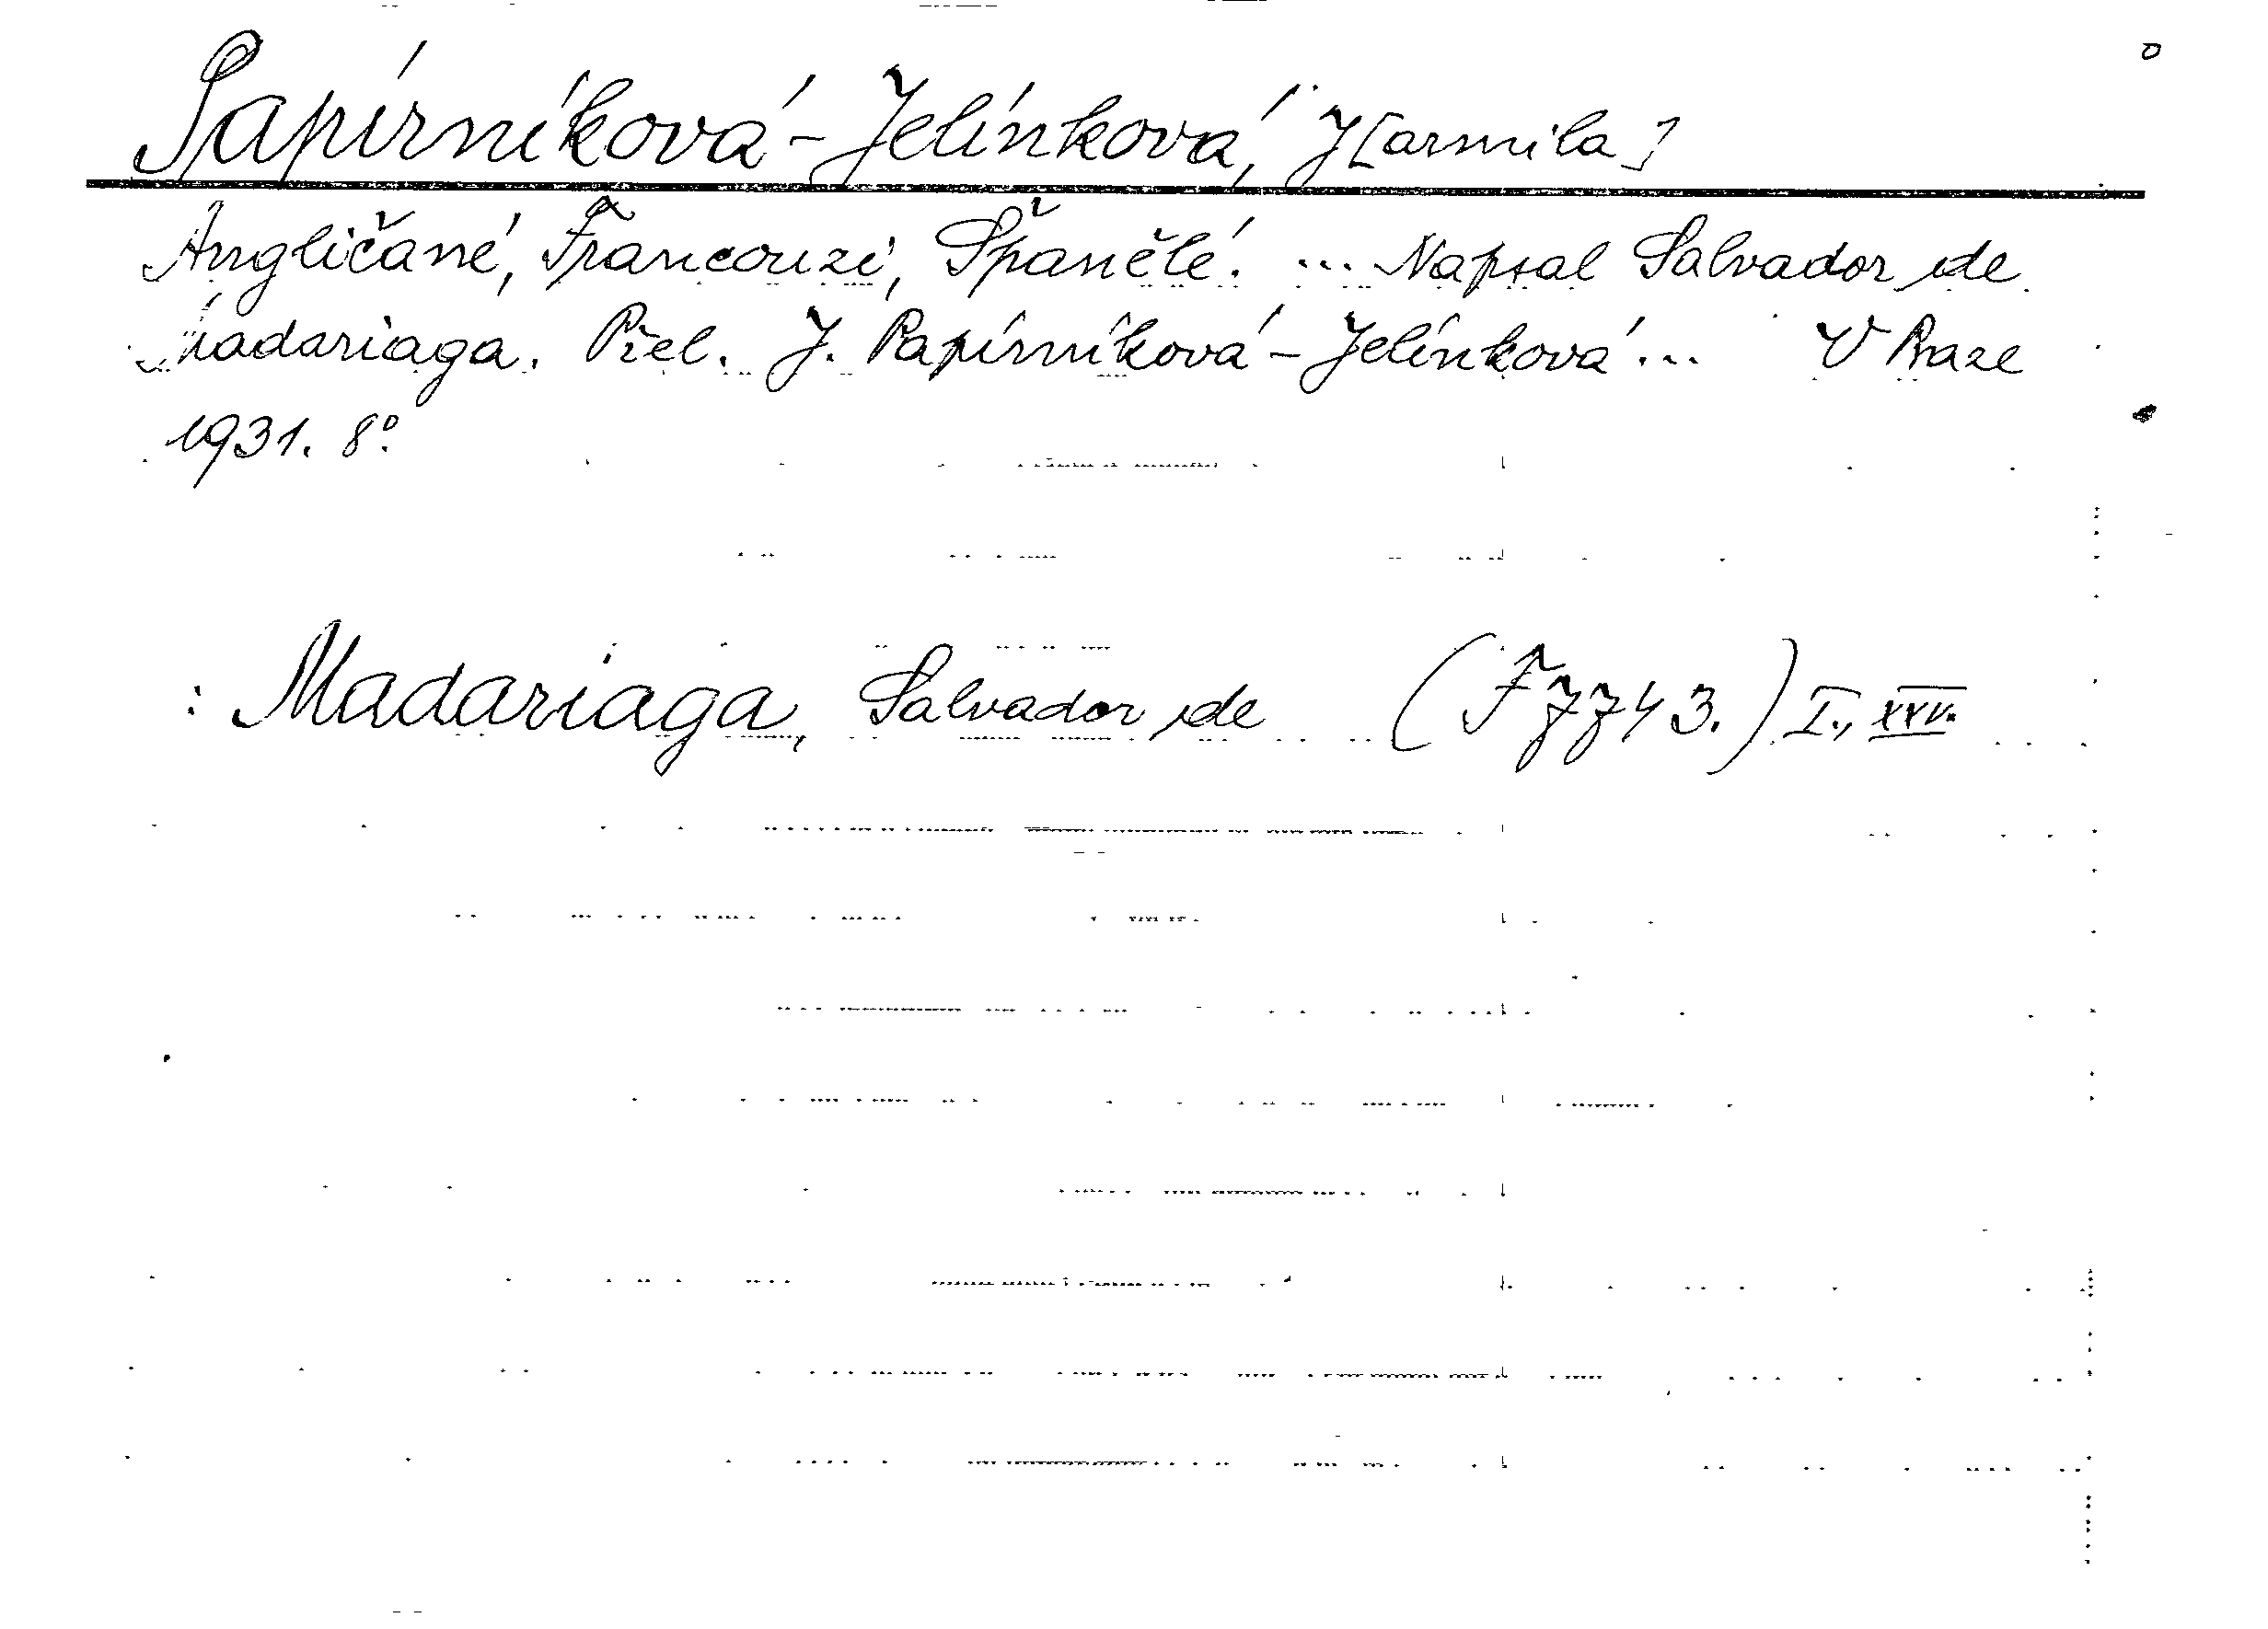 Papírníková-Jelínková, J[armila]
Angličané, Francouzi, Španělé. ... Napsal Salvador de
Madariaga. Přel. J. Papírníková-Jelínková... V Praze
1931. 8°.
: Madariaga, Salvador de (F 7743.) I., XXV.